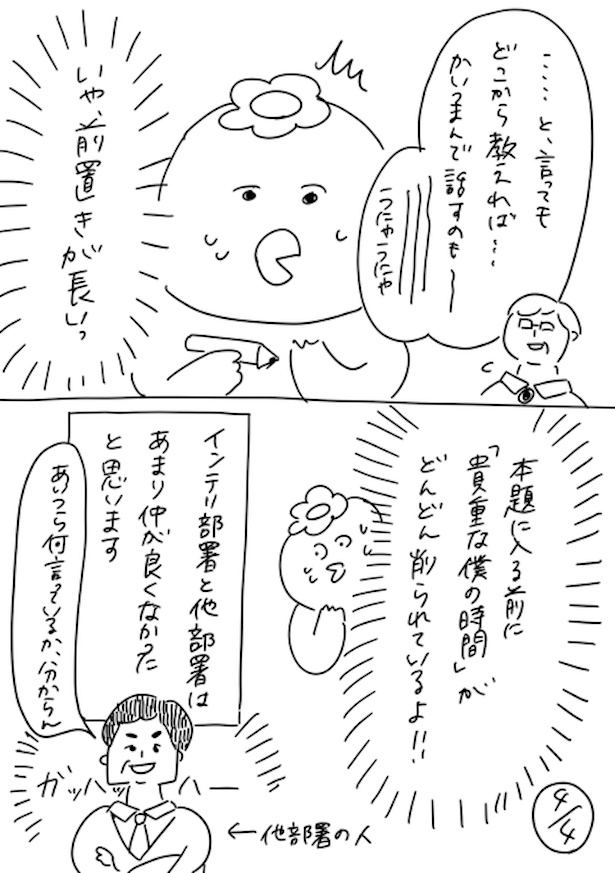 ……と、言っても
どこから教えれば…
かいつまんで話すのも〜
うにゃうにゃ
いや、前置きが長いっ
本題に入る前に
「貴重な僕の時間」が
どんどん削られているよ!!
インテリ部署と他部署は
あまり仲が良くなかった
と思います
あいつら何言っているか、分からん
ガッハッハー
←他部署の人
4/4